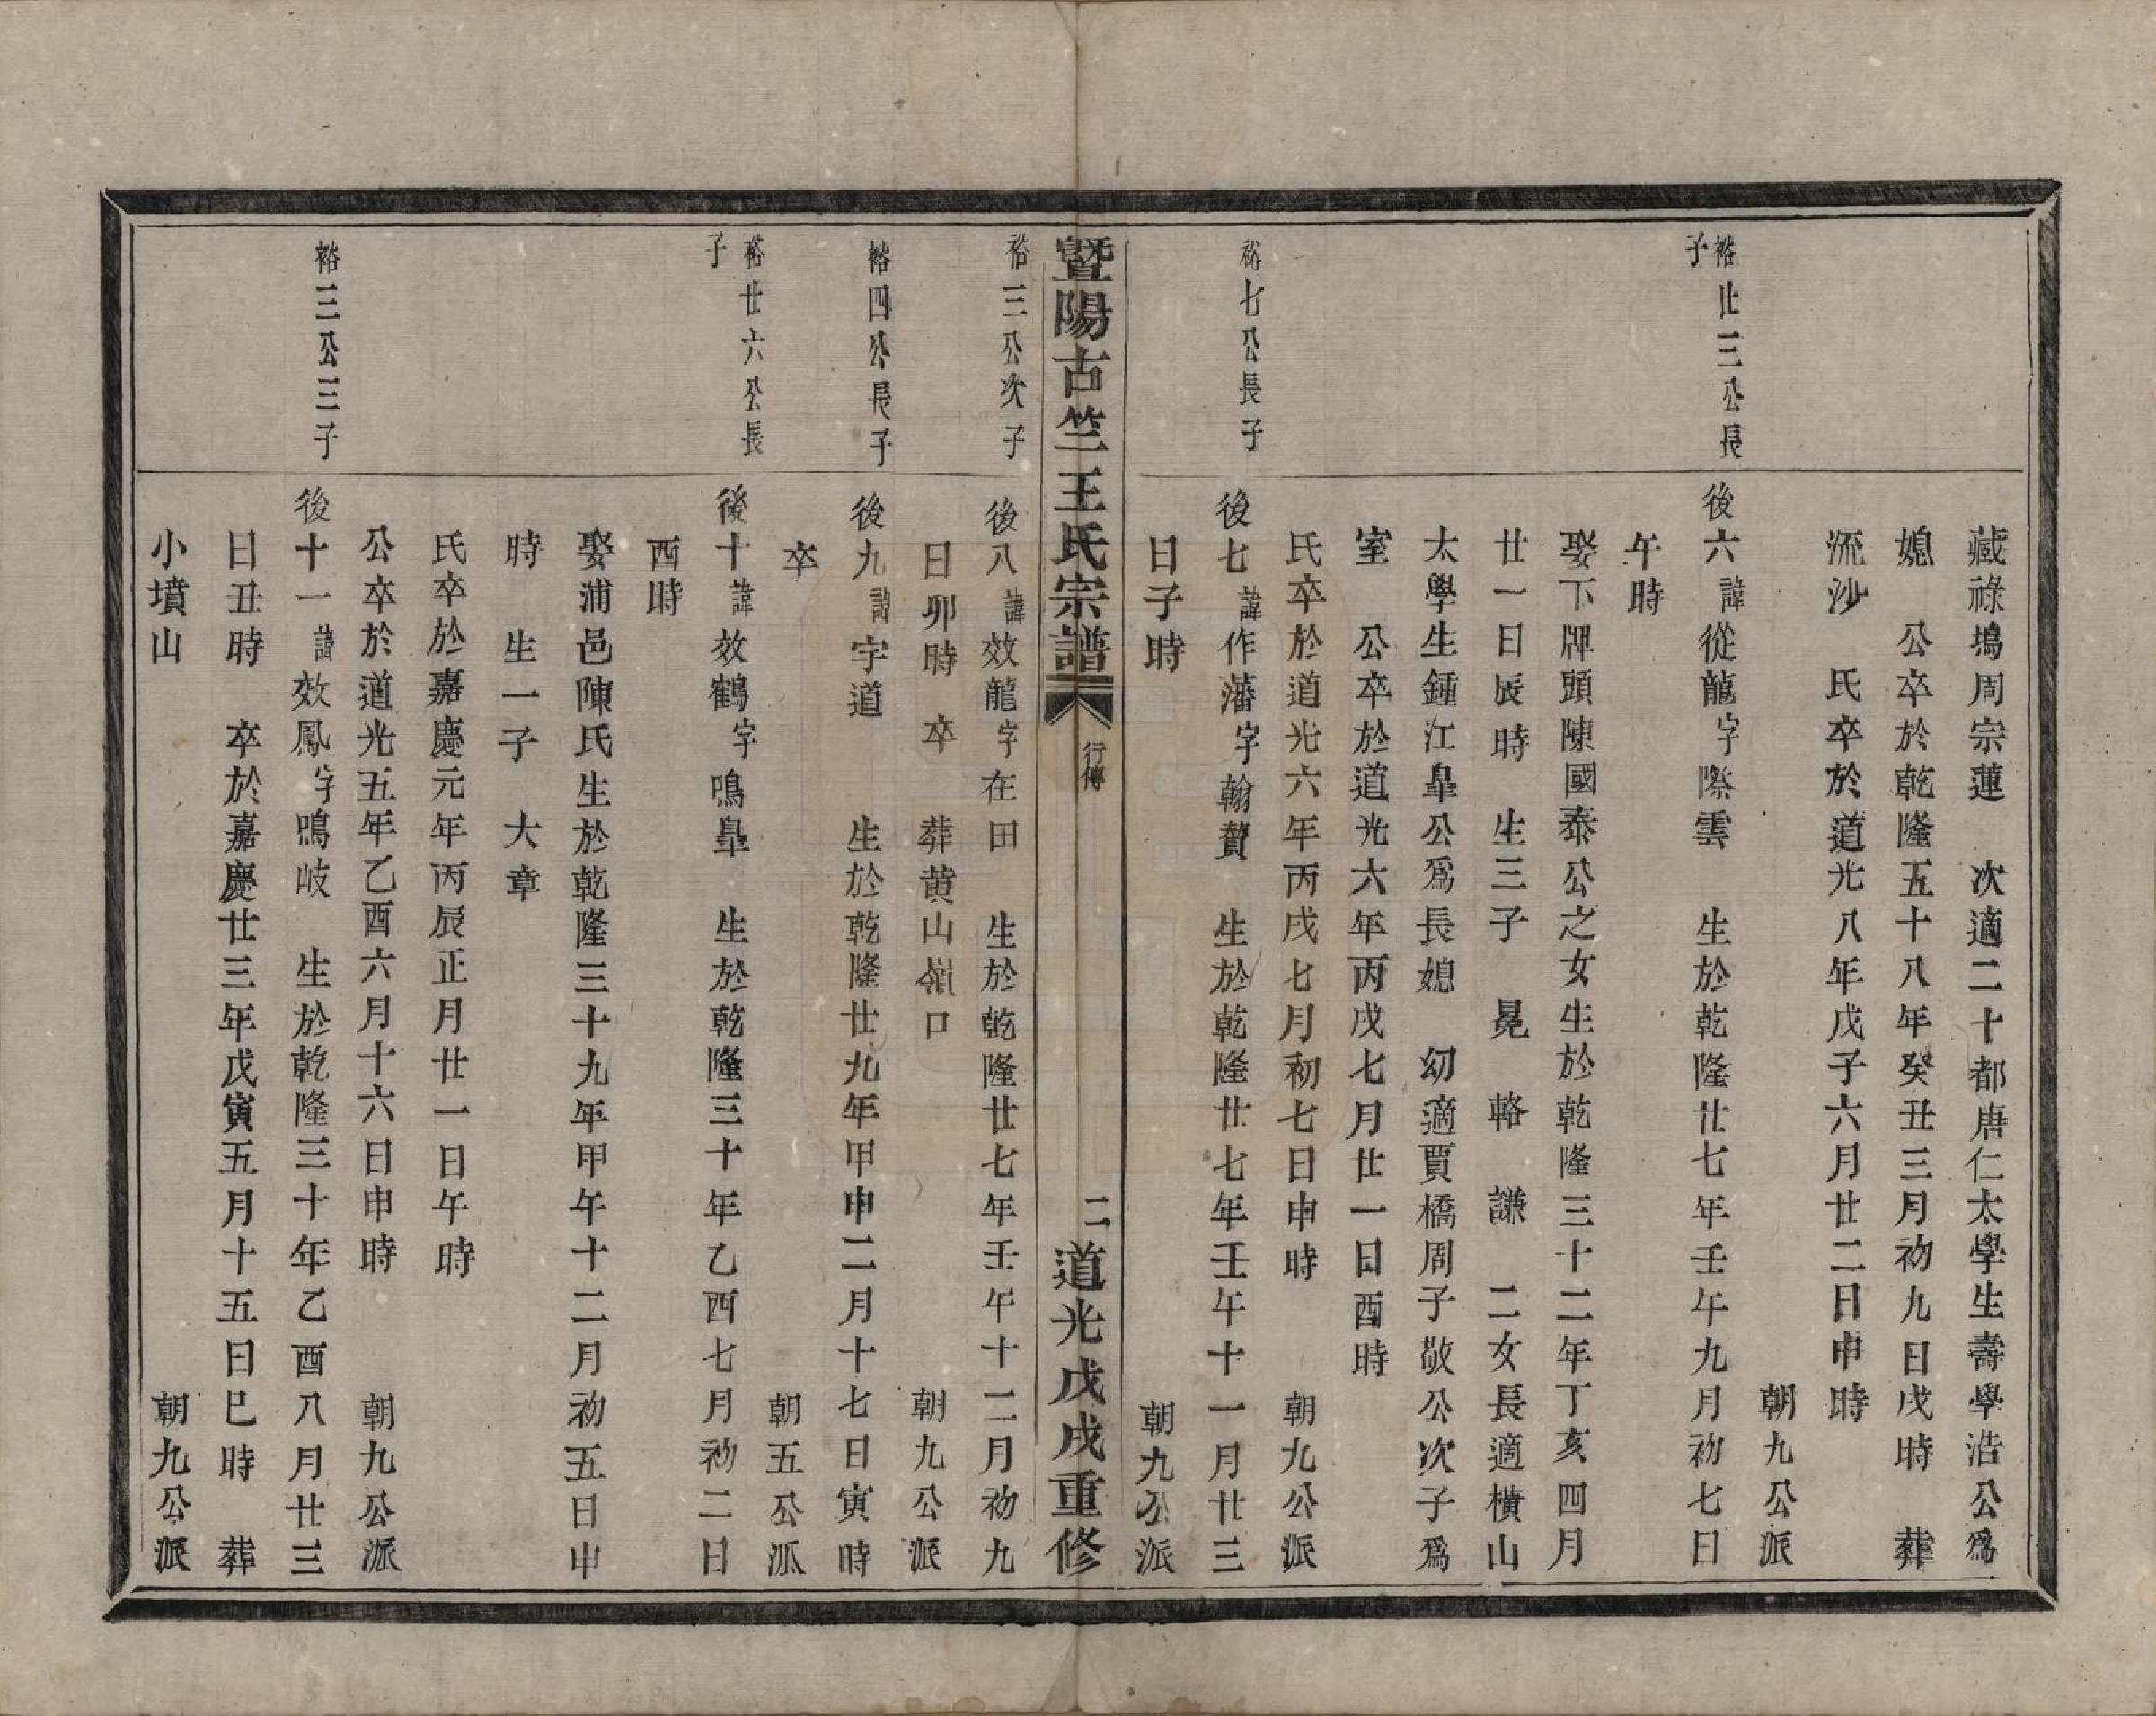 藏祿塢周宗蓮　次適二十都唐仁太學生壽學浩公爲
媳　公卒於乾隆五十八年癸丑三月初九日戌時　葬
流沙　氏卒於道光八年戊子六月廿二日申時
朝九公派
裕廿三公長
子
後六諱從龍字際雲　生於乾隆廿七年壬午九月初七日
午時
娶下牌頭陳國泰公之女生於乾隆三十二年丁亥四月
廿一日辰時　生三子　晃　輅　謙　二女長適橫山
太學生鍾江臯公爲長媳　幼適賈橋周子敬公次子爲
室　公卒於道光六年丙戌七月廿一日酉時
氏卒於道光六年丙戌七月初七日申時　朝九公派
裕七公長子
後七諱作藩字翰贊　生於乾隆廿七年壬午十一月廿三
日子時　朝九公派
暨陽古竺王氏宗譜　行傳　二　道光戊戌重修
裕三公次子
後八諱效龍字在田　生於乾隆廿七年壬午十二月初九
日卯時　卒　葬黃山嶺口　朝九公派
裕四公長子
後九諱　字道　生於乾隆廿九年甲申二月十七日寅時
卒　朝五公派
裕廿六公長
子
後十諱效鶴字鳴臯　生於乾隆三十年乙酉七月初二日
酉時
娶浦邑陳氏生於乾隆三十九年甲午十二月初五日申
時　生一子　大章
氏卒於嘉慶元年丙辰正月廿一日午時
公卒於道光五年乙酉六月十六日申時　朝九公派
裕三公三子
後十一諱效鳳字鳴岐　生於乾隆三十年乙酉八月廿三
日丑時　卒於嘉慶廿三年戊寅五月十五日巳時　葬
小墳山　朝九公派